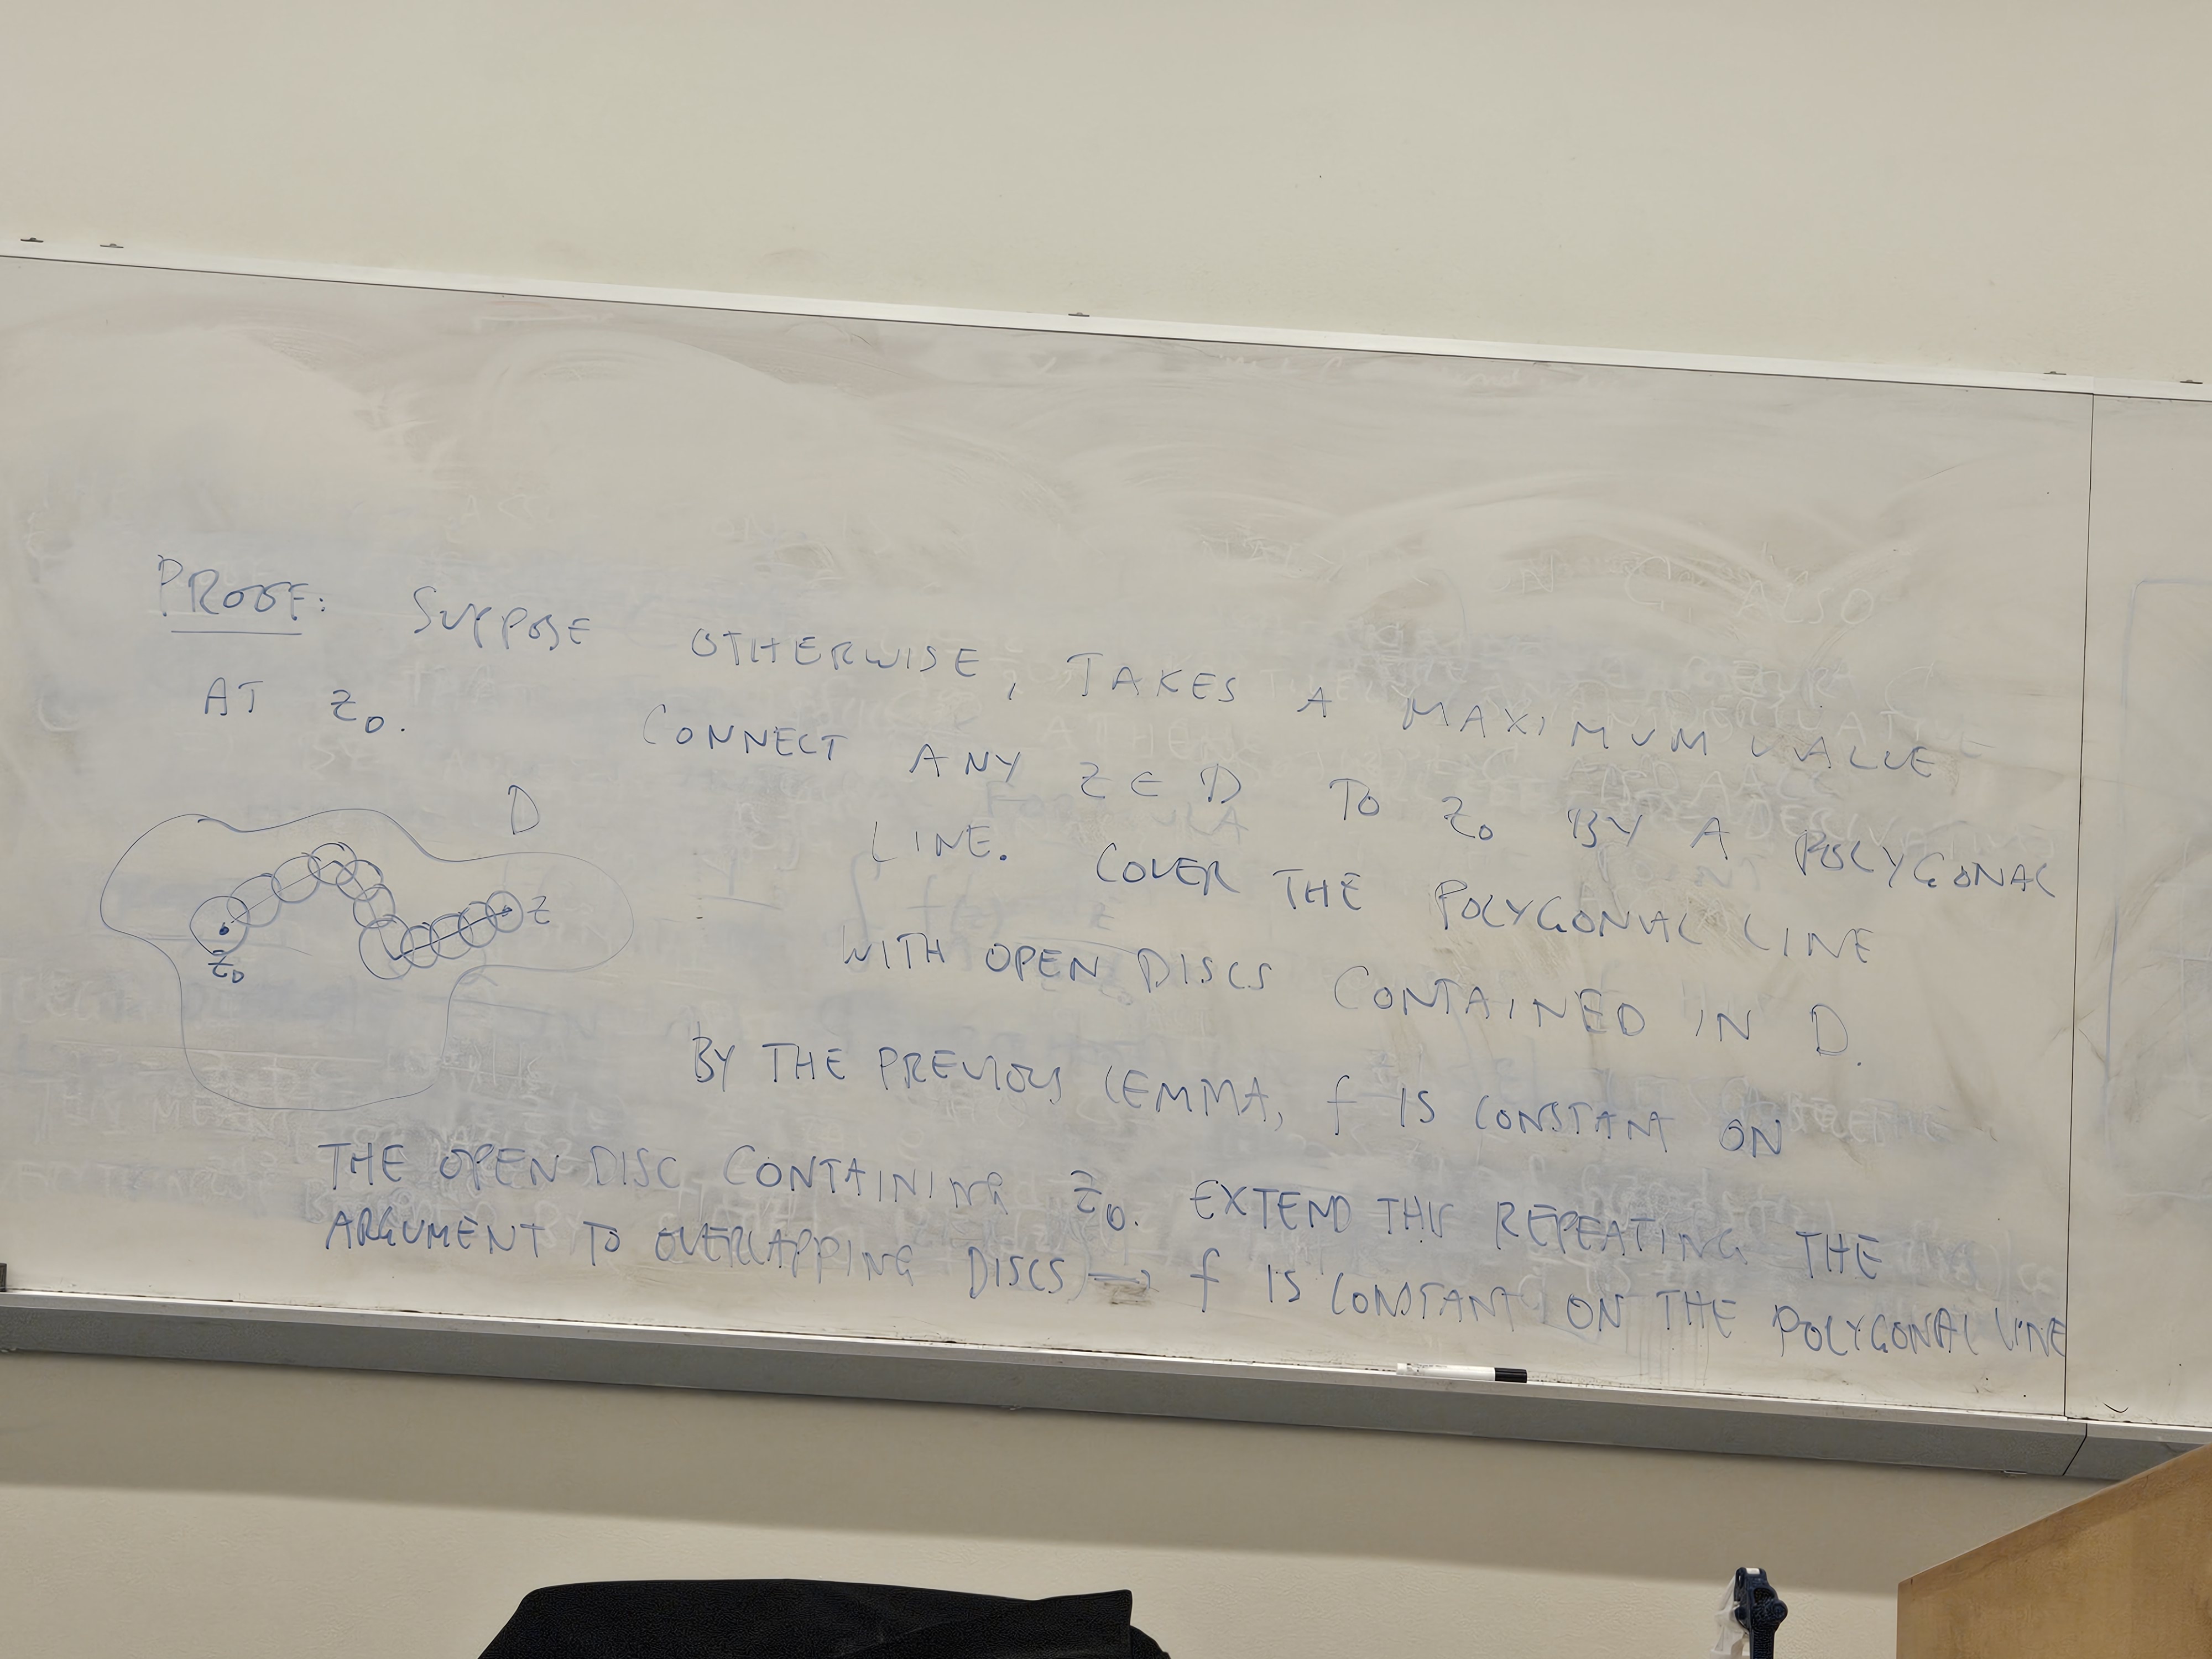 PROOF: SUPPOSE OTHERWISE, TAKES A MAXIMUM VALUE
AT z₀. CONNECT ANY z ∈ D TO z₀ BY A POLYGONAL
LINE. COVER THE POLYGONAL LINE
WITH OPEN DISCS CONTAINED IN D.
D
z₀
z
BY THE PREVIOUS LEMMA, f IS CONSTANT ON
THE OPEN DISC CONTAINING z₀. EXTEND THIS REPEATING THE
ARGUMENT TO OVERLAPPING DISCS ⟹ f IS CONSTANT ON THE POLYGONAL LINE